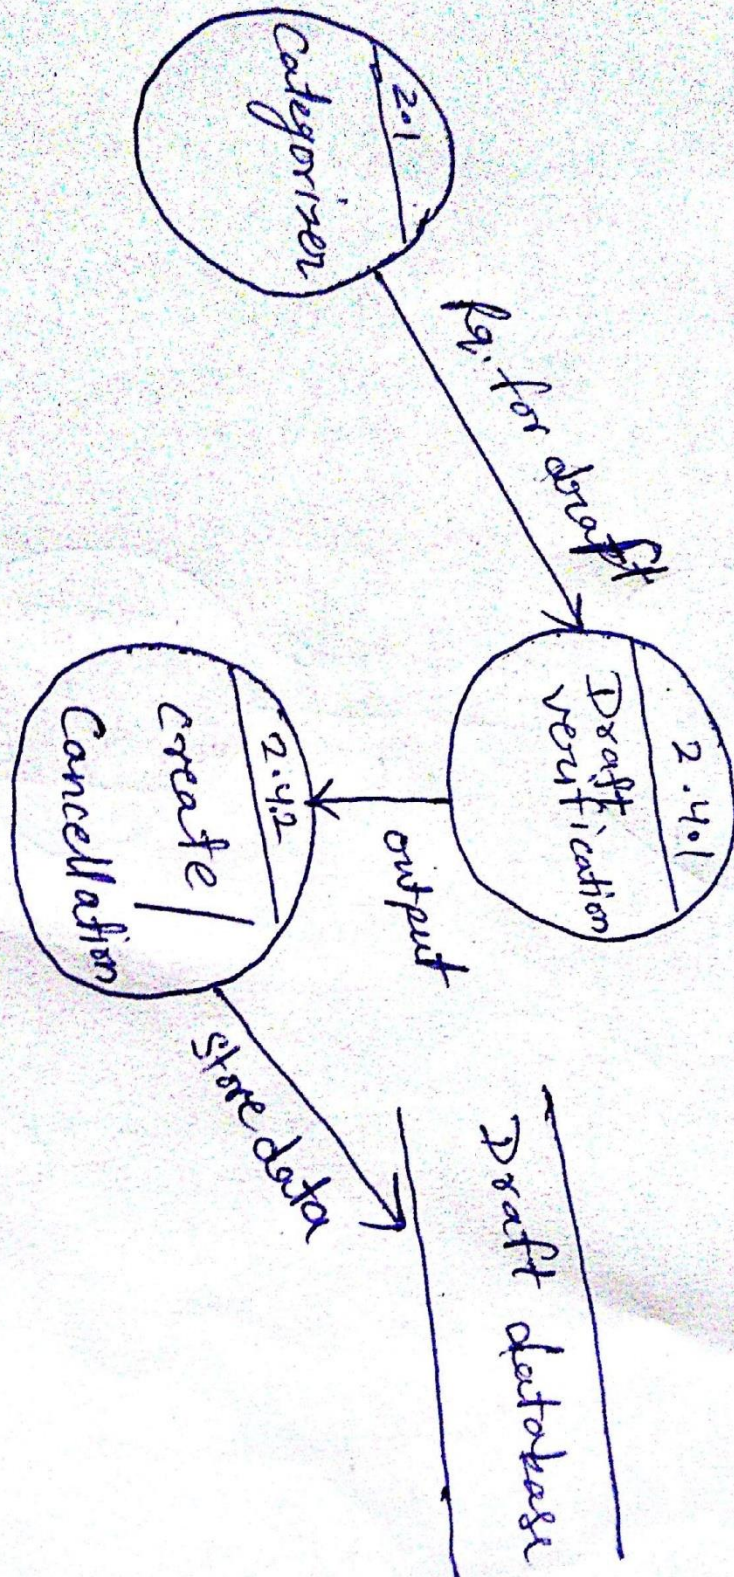 2.1
Categorizer
Rq. for draft
2.4.1
Draft
verification
output
2.4.2
Create /
Cancellation
store data
Draft database